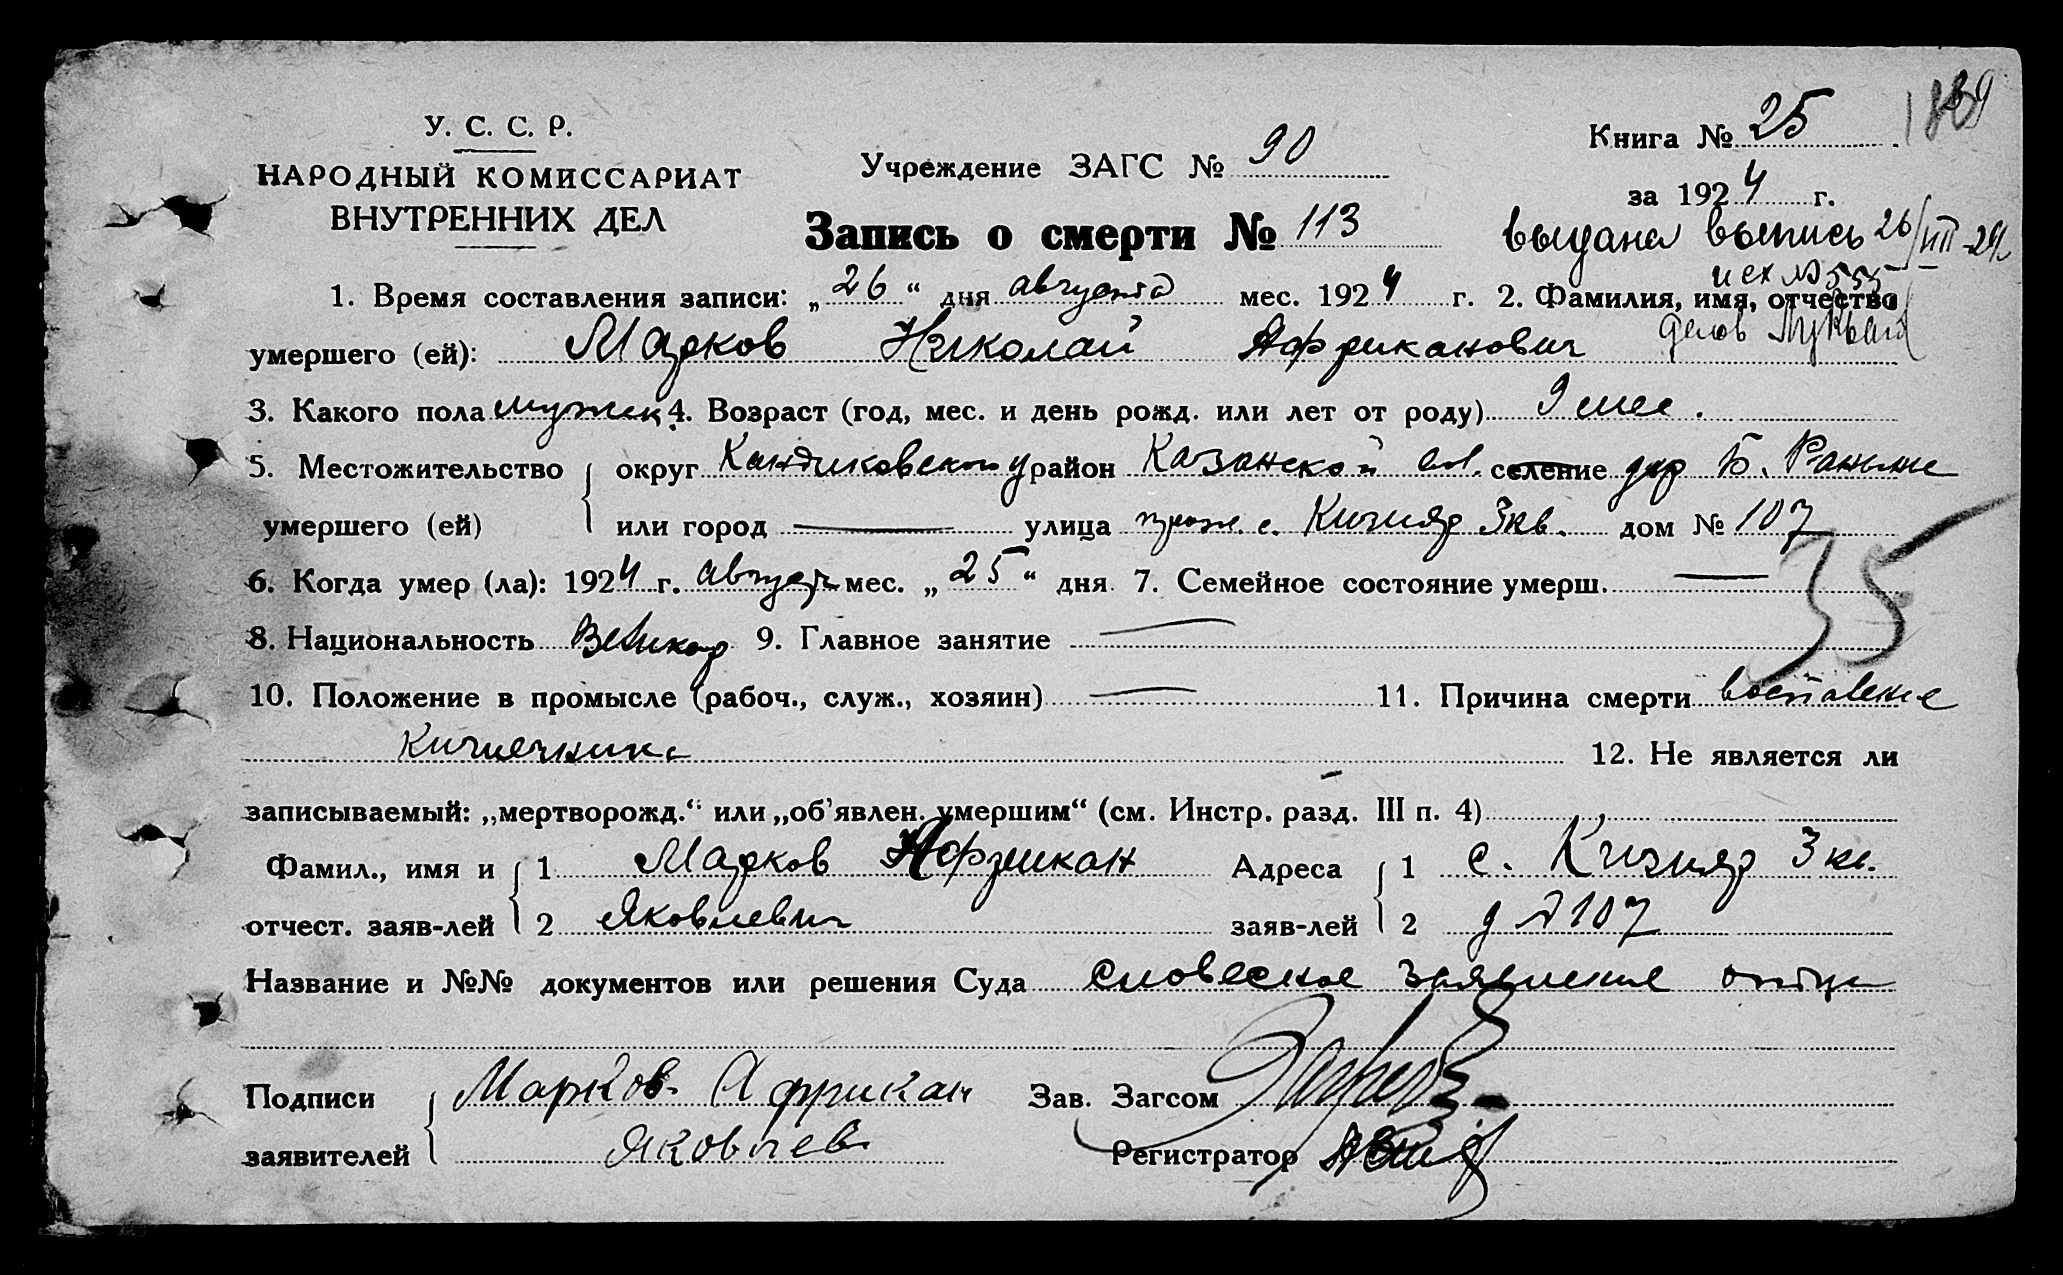 1839
У. С. С. Р.
НАРОДНЫЙ КОМИССАРИАТ
ВНУТРЕННИХ ДЕЛ
Учреждение ЗАГС № 90
Книга № 25
за 1924 г.
Запись о смерти № 113
выдана выпись 26/VIII-24
исх № 555
1. Время составления записи: „26“ дня августа мес. 1924 г. 2. Фамилия, имя, отчество
умершего (ей): Марков Николай Африканович
3. Какого пола мужск 4. Возраст (год, мес. и день рожд. или лет от роду) 9 мес.
5. Местожительство округ район Казанской вл. селение дер Б.
умершего (ей) или город — улица прож. с. Кизияр 3 кв. дом № 107
35
6. Когда умер (ла): 1924 г. август мес. „25“ дня 7. Семейное состояние умерш. —
8. Национальность Великор 9. Главное занятие —
10. Положение в промысле (рабоч., служ., хозяин) — 11. Причина смерти
Кишечника
12. Не является ли
записываемый: „мертворожд.“ или „об'явлен. умершим“ (см. Инстр. разд. III п. 4)
Фамил., имя и 1 Марков Африкан Адреса 1 с. Кизияр 3 кв.
отчест. заяв-лей 2 Яковлевич заяв-лей 2 д № 107
Название и №№ документов или решения Суда словесное заявление отца
Подписи Марков Африкан Зав. Загсом
заявителей Яковлев Регистратор